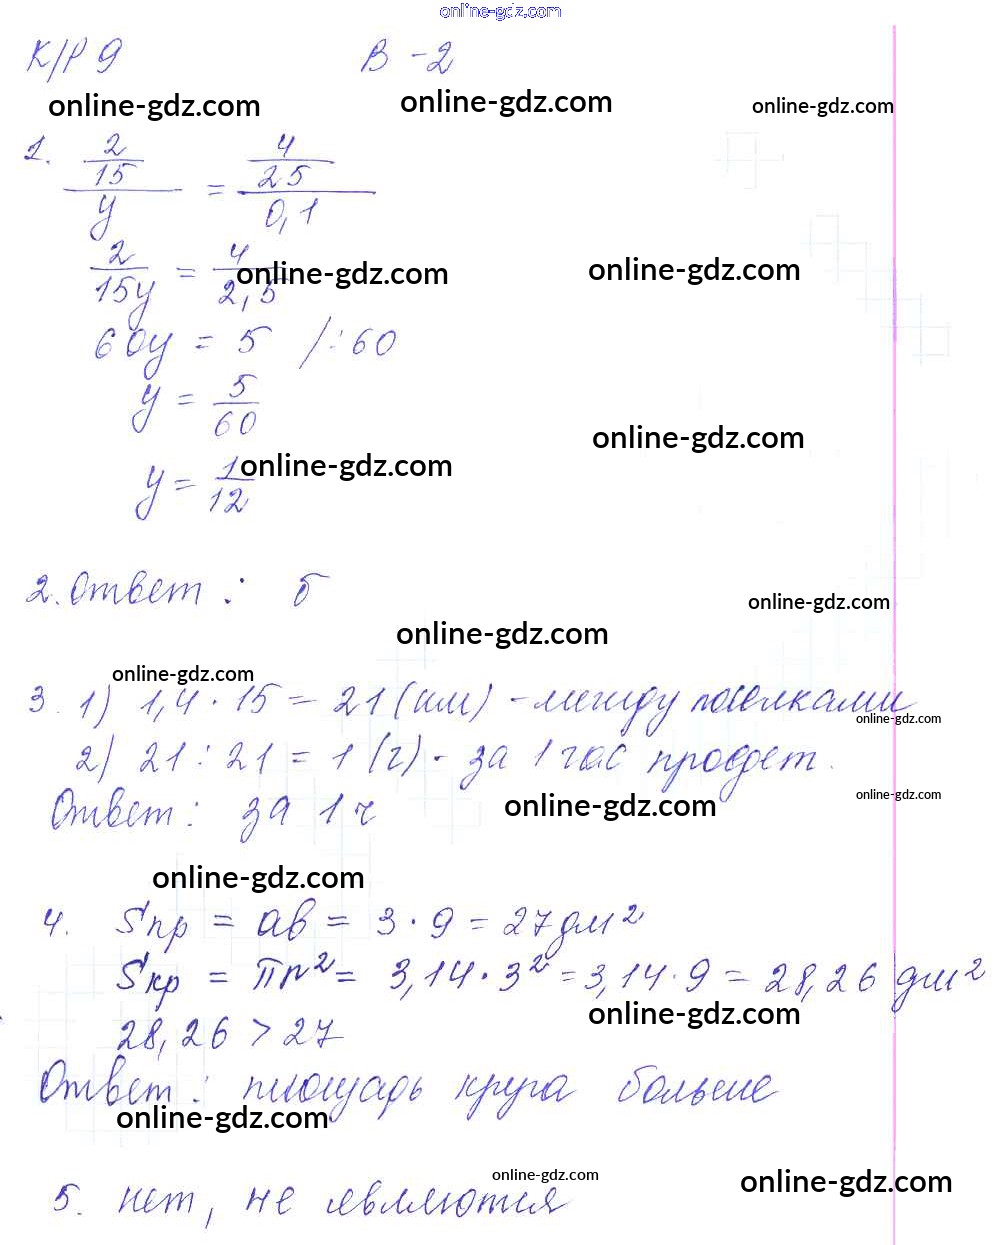 online-gdz.com
К/Р 9 В -2
online-gdz.com online-gdz.com online-gdz.com
1. 2/15 / y = 4/25 / 0,1
2/15y = 4/2,5
online-gdz.com online-gdz.com
60y = 5 /:60
y = 5/60
online-gdz.com
y = 1/12
online-gdz.com
2. Ответ: б
online-gdz.com
online-gdz.com
online-gdz.com
3. 1) 1,4 · 15 = 21 (км) - между посёлками
online-gdz.com
2) 21 : 21 = 1 (г) - за 1 час проедет.
online-gdz.com
Ответ: за 1 ч
online-gdz.com
online-gdz.com
4. Sпр = ab = 3 · 9 = 27 дм²
Sкр = πr² = 3,14 · 3² = 3,14 · 9 = 28,26 дм²
online-gdz.com
28,26 > 27
Ответ: площадь круга больше
online-gdz.com
online-gdz.com
online-gdz.com
5. нет, не являются